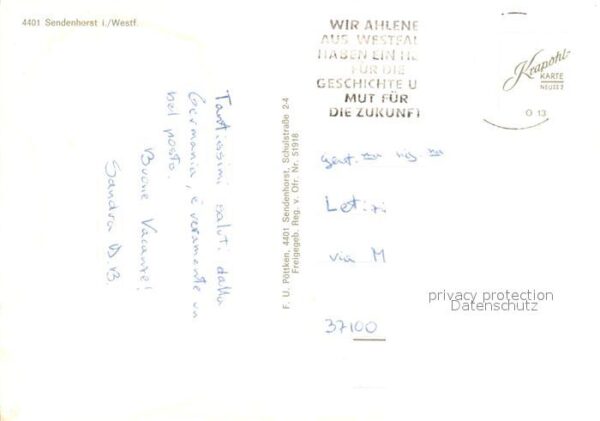 4401 Sendenhorst i./Westf.
WIR AHLENE
AUS WESTFAL
HABEN EIN HE
FÜR DIE
GESCHICHTE U
MUT FÜR
DIE ZUKUNFT
Krapohl-
KARTE
O 13
Tantissimi saluti dalla
Germania, è veramente un
bel posto.
Buone Vacanze!
Sandra D.B.
F. U. Pöttken, 4401 Sendenhorst, Schulstraße 2-4
Freigegeb. Reg. v. Ofr. Nr. 51918
gent.ma sig.na
Letizi
via M
37100
privacy protection
Datenschutz